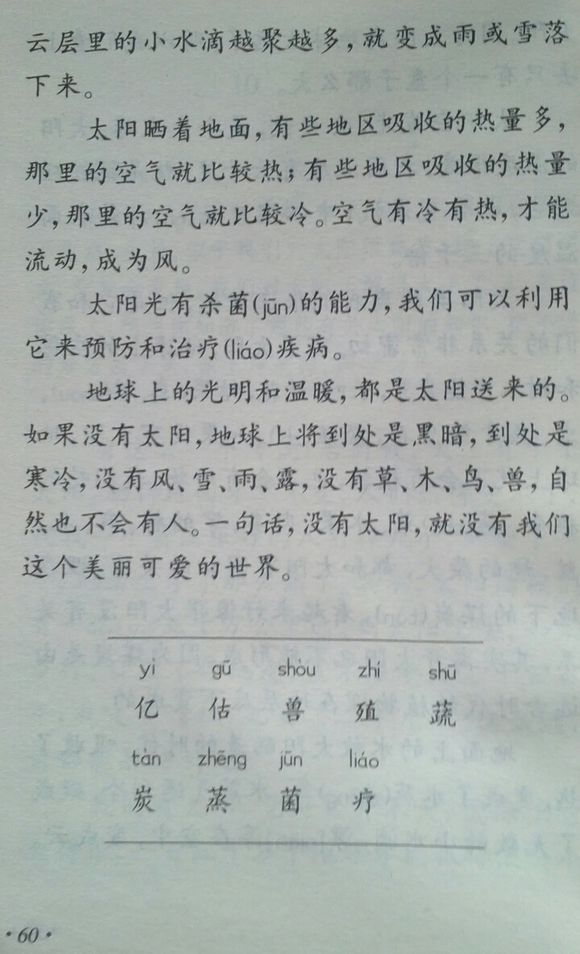 云层里的小水滴越聚越多，就变成雨或雪落
下来。
太阳晒着地面，有些地区吸收的热量多，
那里的空气就比较热；有些地区吸收的热量
少，那里的空气就比较冷。空气有冷有热，才能
流动，成为风。
太阳光有杀菌(jūn)的能力，我们可以利用
它来预防和治疗(liáo)疾病。
地球上的光明和温暖，都是太阳送来的。
如果没有太阳，地球上将到处是黑暗，到处是
寒冷，没有风、雪、雨、露，没有草、木、鸟、兽，自
然也不会有人。一句话，没有太阳，就没有我们
这个美丽可爱的世界。
yì gū shòu zhí shū
亿 估 兽 殖 蔬
tàn zhēng jūn liáo
炭 蒸 菌 疗
·60·